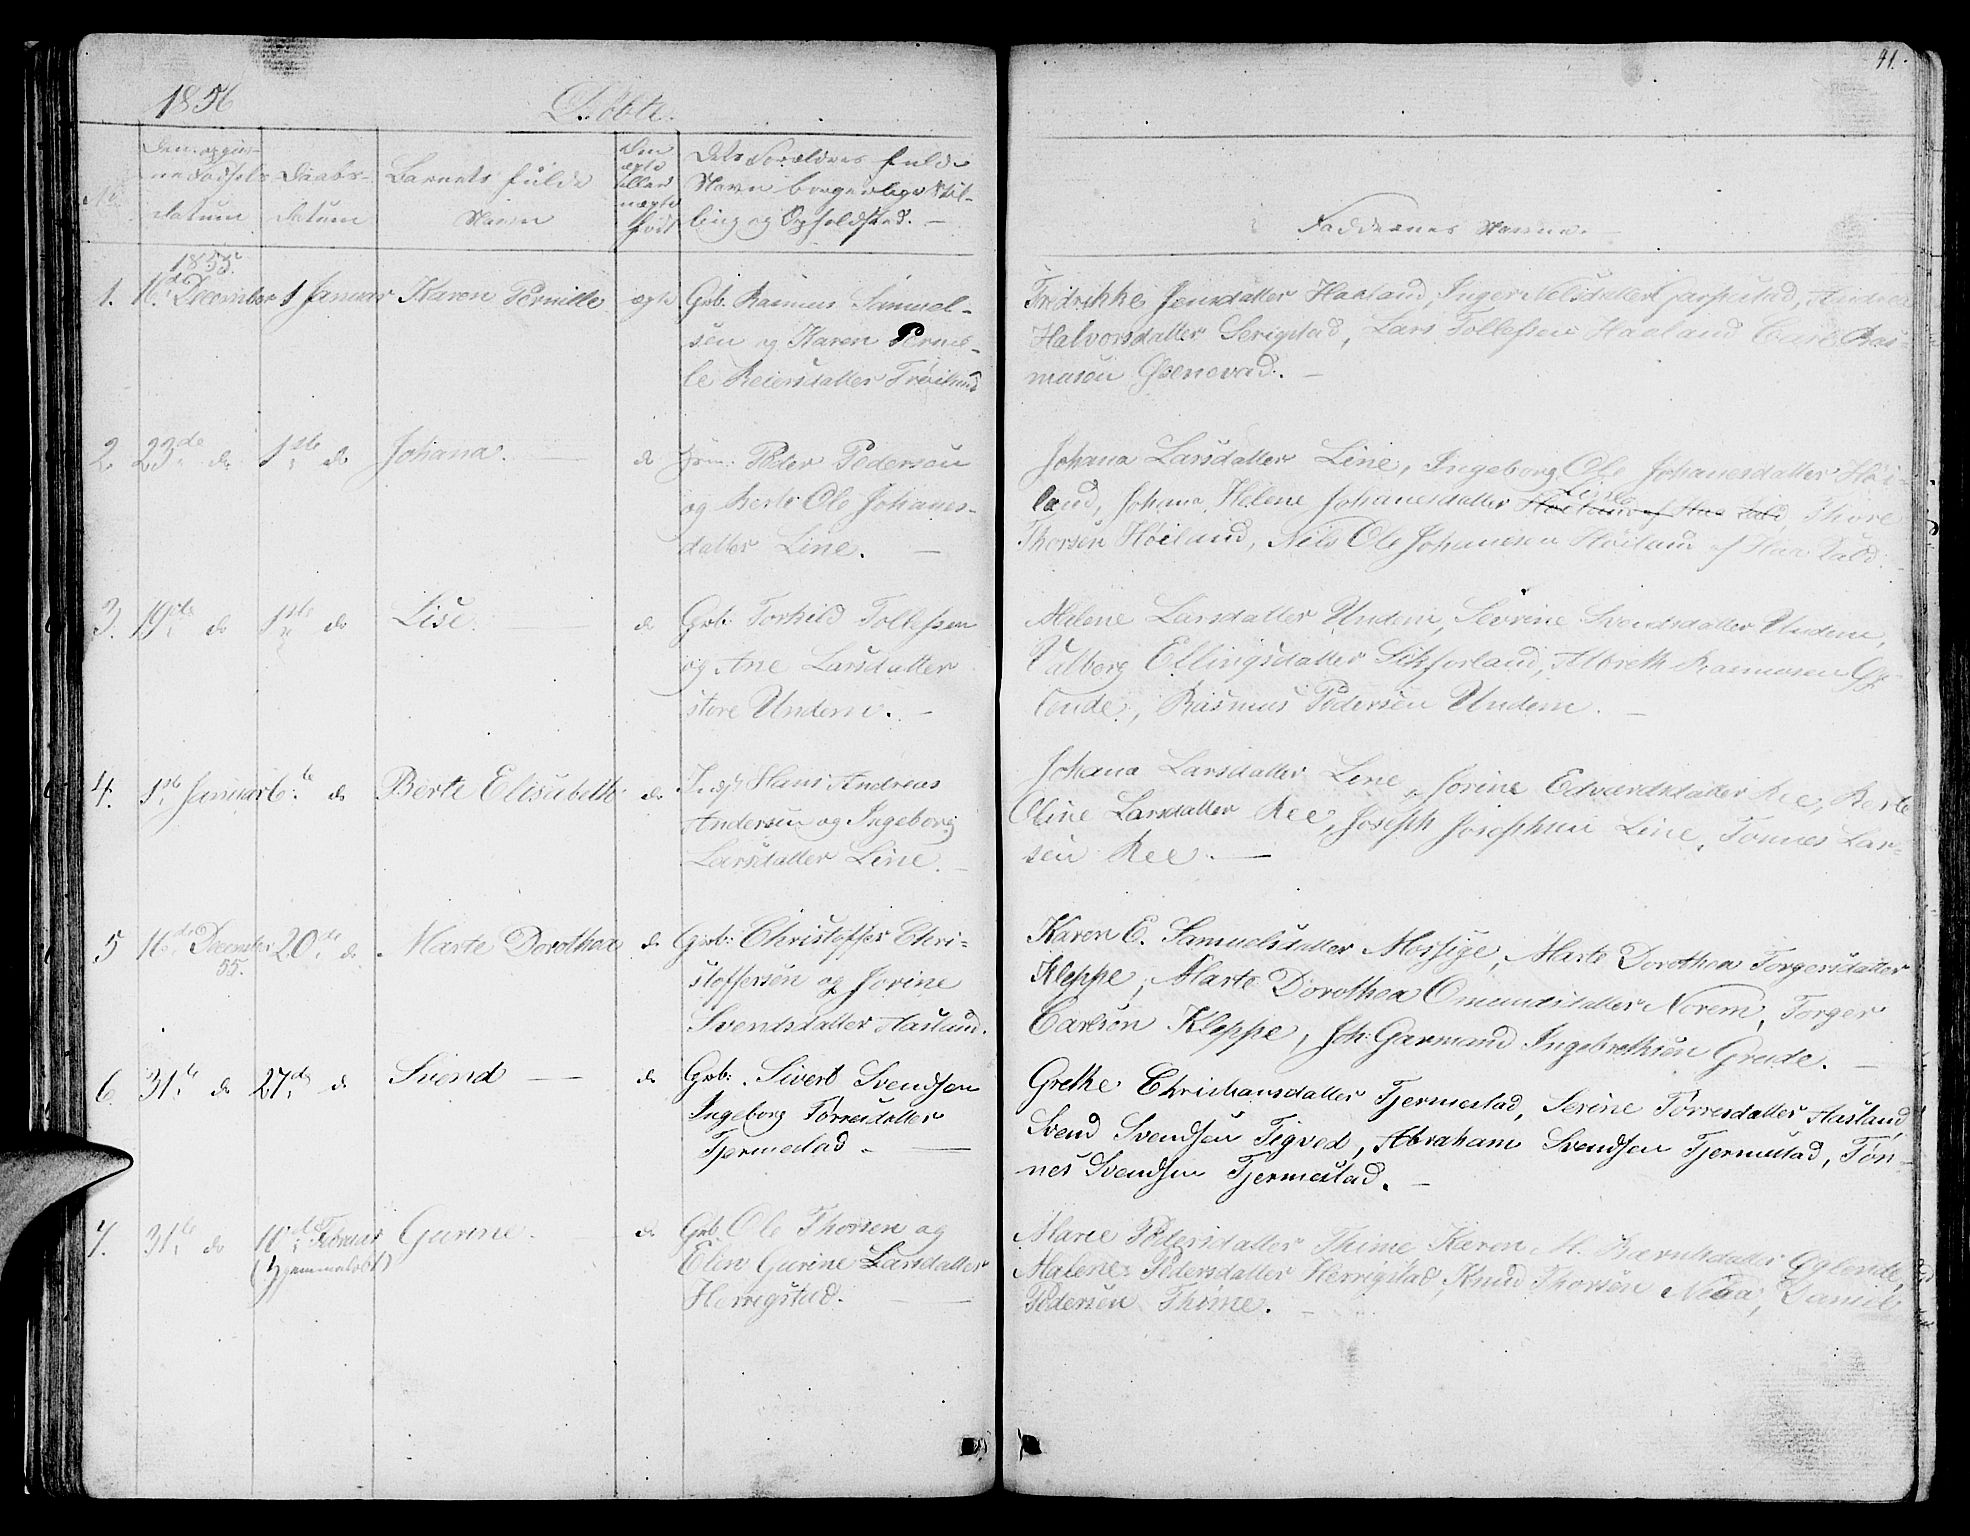 41.
1856
Döbte.
No
Den opgivne Fødsels datum
Daabs-datum
Barnets fulde Navn
Om ægte eller uægte født
Dets Forældres fulde Navn borgerlige Stilling og Opholdsted. —
Faddernes Navne. —
1855.
1. 16de December 1 Januar Karen Pernille ægte Grb. Rasmus Samuel-
sen og Karen Pernil-
le Reiersdatter
Fredrikke Jensdatter Haaland, Inger Nelsdatter Andrea
Halvorsdatter Serigstad, Lars Tollefsen Haaland Carl Ras-
musen
2. 23de do 1ste do Johana. — do Grm: Peder Pedersen
og Berte Ole Johanes-
datter Line. —
Johana Larsdatter Line, Ingeborg Ole Johanesdatter Høi-
land, Johana Helene Johanesdatter Line Thore
Thorsen Høiland, Nils Ole Johanesen Høiland af Haa Sald.
3. 19de do 1ste do Lise. — do Grb: Torkild Tollefsen
og Ane Larsdatter
store Undem. —
Malene Larsdatter Undem, Sevrine Svendsdatter Undem,
Valborg Ellingsdatter Albreth Rasmusen Gg-
lende, Rasmus Pedersen Undem. —
4. 1ste Januar 6te do Berte Elisabeth do Hans Andreas
Andersen og Ingeborg
Larsdatter Line. —
Johana Larsdatter Line, Jorine Edvardsdatter Ree, Berte
Oline Larsdatter Ree, Joseph Josephsen Line, Tonnes Lar-
sen Ree. —
5 16de December 55. 20de do Marte Dorothea do Grb: Christoffer Chri-
stoffersen og Jorine
Svendsdatter Aasland.
Karen E. Samuelsdatter Mossige, Marte Dorothea Torgersdatter
Kleppe, Marte Dorothea Omundsdatter Norem, Torger
Carlson Kleppe, Joh: Garmand Ingebrethsen Grude. —
6. 31te do 27de do Svend — do Grb: Sivert Svendsen
Ingeborg Torresdatter
Tjermestad. —
Grethe Christiansdatter Tjermestad, Serine Torresdatter Aasland,
Svend Svendsen Tigved, Abraham Svendsen Tjermestad, Tøn-
nes Svendsen Tjermestad. —
7. 31te do 10de Februar (hjemmedøbt) Gurine. do Grb. Ole Thorsen og
Elen Gurine Larsdatter
Herrigstad. —
Marie Pedersdatter Thime, Karen M. Berntsdatter Gglende,
Malene Pedersdatter Herrigstad, Knud Thorsen Daniel
Pedersen Thime. —